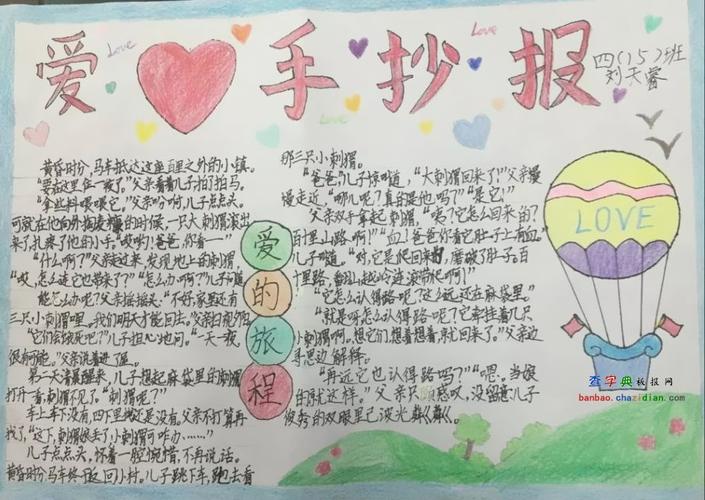 爱 手抄报
Love
Love
Love
四(15)班
刘天蓉
爱的旅程
黄昏时分，马车抵达这座百里之外的小镇。
父亲看着儿子拍了拍马。
父亲吩咐，儿子点点头。
可就在他向外掏麦糠的时候，一只大刺猬滚出
来了，扎疼了他的小手。“哎哟！爸爸，你看——”
“什么啊？”父亲赶过来，发现地上的刺猬，
“哎，怎么连它也带来了？”“怎么办啊？”儿子问道
能怎么办呢？父亲摇摇头。“不好，家里还有
三只小刺猬哩。我们明天才能回去。”
“它们会饿死吧？”儿子担心地问。“一天一夜，
很有可能。”父亲说着进了屋。
第二天清晨醒来，儿子想起麻袋里的刺猬
打开一看，刺猬不见了。“刺猬呢？”
车上车下没有，四下里找还是没有。父亲不打算再
找了，“这下，刺猬很丢了，小刺猬可咋办……”
儿子点点头，怀着一腔惋惜，不再说话。
黄昏时分马车终于返回小村。儿子跳下车，跑去看
那三只小刺猬。
“爸爸，”儿子惊叫道，“大刺猬回来了！”父亲慢
慢走近，“哪儿呢？真的是他吗？”“是它！”
父亲双手拿起刺猬，“咦？它怎么回来的？
百里山路啊！”“血！爸爸你看它肚子上有血。”
儿子叫道。“对，它是爬回来的，磨破了肚子。百
十里路，翻山越岭连滚带爬啊！”
“它怎么认得路呢？这么远，还在麻袋里。”
“就是呀怎么认得路呢？它牵挂着几只
小刺猬啊。想它们，想着想着，就回来了。”父亲边
寻思边解释。
“再远它也认得路吗？”“嗯。当娘
的就这样。”父亲只顾感叹，没留意儿子
俊秀的双眼里已泪光
LOVE
查字典板报网
banbao.chazidian.com